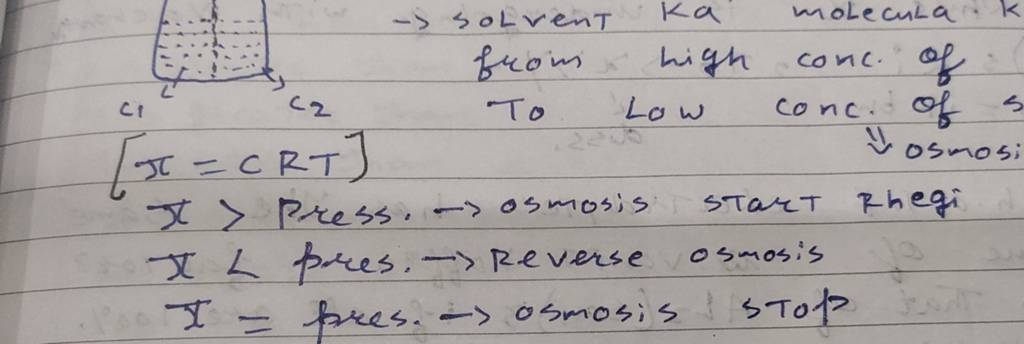 -> solvent ka molecula
from high conc. of
C1 C2 To Low conc. of
[π = CRT] ⇓ osmosi
π > Press. -> osmosis start Rhegi
π < pres. -> Reverse osmosis
π = pres. -> osmosis stop